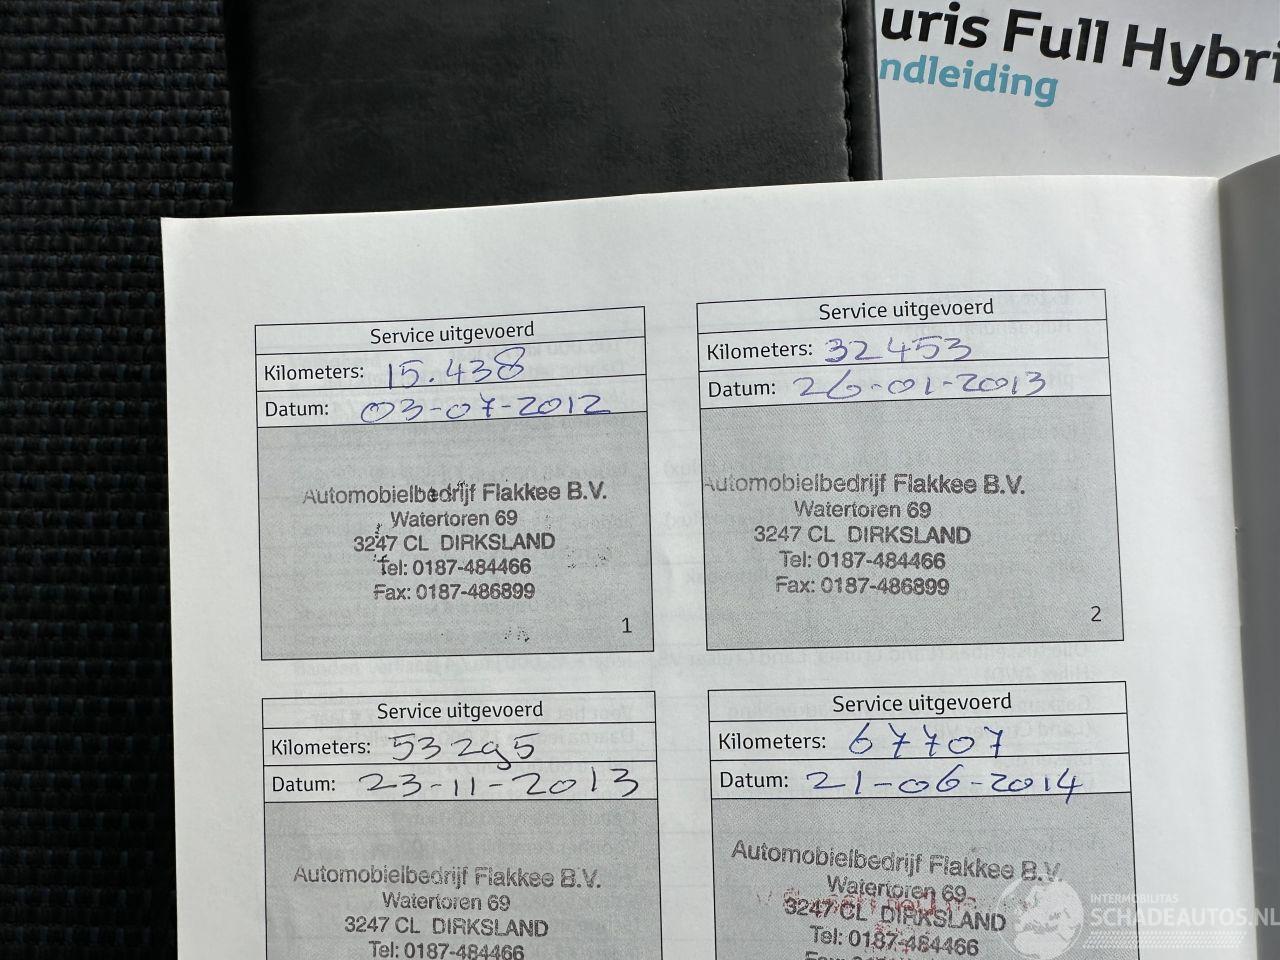 uris Full Hybri
ndleiding
Service uitgevoerd
Kilometers: 15.438
Datum: 03-07-2012
Automobielbedrijf Flakkee B.V.
Watertoren 69
3247 CL DIRKSLAND
Tel: 0187-484466
Fax: 0187-486899
1
Service uitgevoerd
Kilometers: 32453
Datum: 26-01-2013
Automobielbedrijf Flakkee B.V.
Watertoren 69
3247 CL DIRKSLAND
Tel: 0187-484466
Fax: 0187-486899
2
Service uitgevoerd
Kilometers: 53295
Datum: 23-11-2013
Automobielbedrijf Flakkee B.V.
Watertoren 69
3247 CL DIRKSLAND
Tel: 0187-484466
Service uitgevoerd
Kilometers: 67707
Datum: 21-06-2014
Automobielbedrijf Flakkee B.V.
Watertoren 69
3247 CL DIRKSLAND
Tel: 0187-484466
INTERMOBILITAS
SCHADEAUTOS.NL